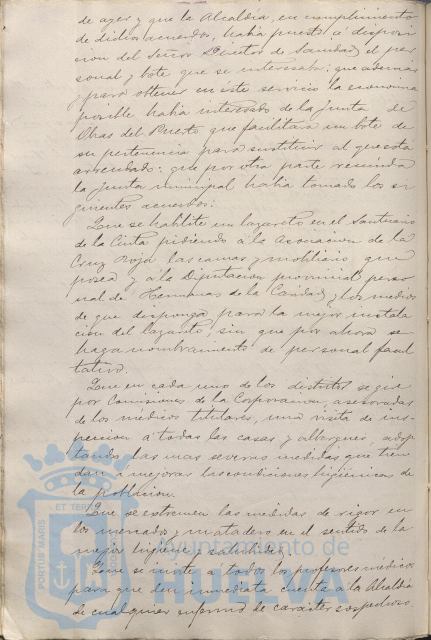 de ayer y que la Alcaldía, en cumplimiento
de dicho acuerdo, había puesto á disposi-
cion del Señor Director de Sanidad el per-
sonal y bote que se interesaba: que además
y para obtener en este servicio la economia
posible había interesado de la Junta de
Obras del Puerto que facilitara un bote de
su pertenencia para sustituir al que está
arrendado: que por otra parte reunida
la Junta municipal había tomado los si-
guientes acuerdos:
Que se habilite un lazareto en el Santuario
de la Cinta pidiendo á la Asociacion de la
Cruz Roja las camas y mobiliario que
posea y á la Diputacion provincial perso
nal de Hermanas de la Caridad y los medios
de que disponga para la mejor instala
cion del lazareto, sin que por ahora se
haga nombramiento de personal facul
tativo.
Que en cada uno de los distritos se gire
por Comisiones de la Corporacion, asesoradas
de los médicos titulares, una visita de ins-
peccion á todas las casas y albergues, adop
tando las mas severas medidas que tien
dan á mejorar las condiciones higiénicas de
la poblacion.
Que se extremen las medidas de rigor en
los mercados y matadero en el sentido de la
mejor higiene y salubridad.
Que se invite á todos los profesores médicos
para que den inmediata cuenta á la Alcaldía
de cualquier enfermo de carácter sospechoso
PORTUS MARIS ET TERR
Ayuntamiento de
HUELVA